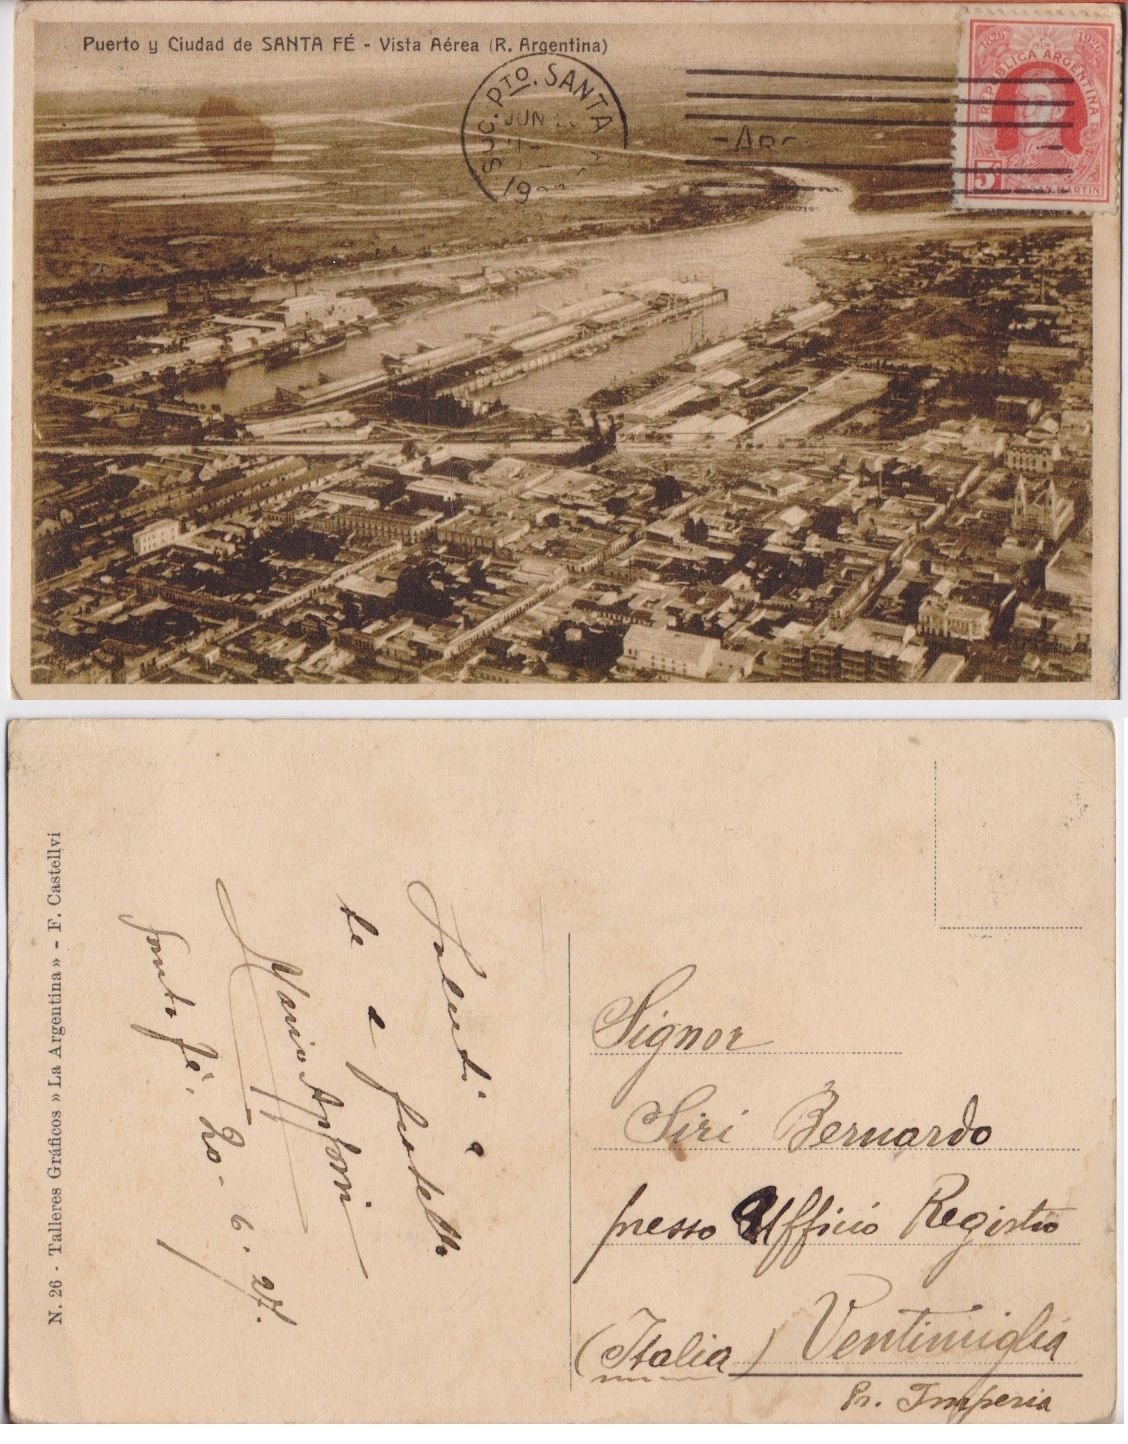 Puerto y Ciudad de SANTA FÉ - Vista Aérea (R. Argentina)
SUC. PTO. SANTA
JUN
19
1826 1926
REPÚBLICA ARGENTINA
5c
SAN MARTIN
N. 26 - Talleres Gráficos » La Argentina » - F. Castellvi
Saluti a
te e fratello
Mario
Santa fè, 20-6.27.
Signor
Siri Bernardo
presso Ufficio Registro
Ventimiglia
(Italia)
Pr. Imperia